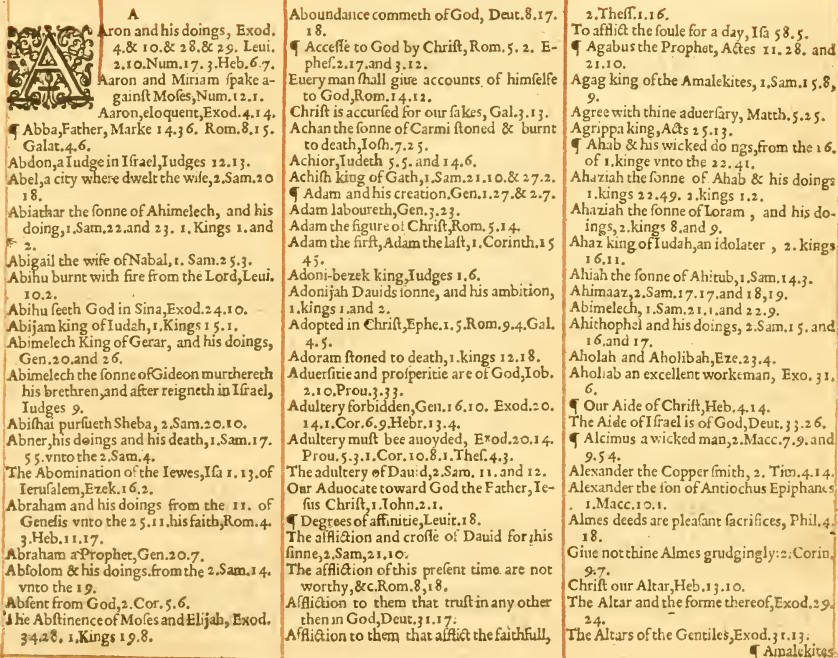 A
Aron and his doings, Exod.
4.& 10.& 28.& 29. Leui.
2.10.Num.17.3.Heb.6.7.
Aaron and Miriam ſpake a-
gainſt Moſes,Num.12.1.
Aaron,eloquent,Exod.4.14.
¶ Abba,Father, Marke 14.36. Rom.8.15.
Galat.4.6.
Abdon,a Iudge in Iſrael,Iudges 12.13.
Abel,a city where dwelt the wiſe,2.Sam.20
18.
Abiathar the ſonne of Ahimelech, and his
doing,1.Sam.22.and 23. 1.Kings 1.and
2.
Abigail the wife of Nabal,1. Sam.25.3.
Abihu burnt with fire from the Lord,Leui.
10.2.
Abihu ſeeth God in Sina,Exod.24.10.
Abijam king of Iudah,1.Kings 15.1.
Abimelech King of Gerar, and his doings,
Gen.20.and 26.
Abimelech the ſonne of Gideon murthereth
his brethren,and after reigneth in Iſrael,
Iudges 9.
Abiſhai purſueth Sheba, 2.Sam.20.10.
Abner,his doings and his death,1.Sam.17.
55.vnto the 2.Sam.4.
The Abomination of the Iewes,Iſa 1.13.of
Ieruſalem,Ezek.16.2.
Abraham and his doings from the 11. of
Geneſis vnto the 25.11.his faith,Rom.4.
3.Heb.11.17.
Abraham a Prophet,Gen.20.7.
Abſolom & his doings.from the 2.Sam.14.
vnto the 19.
Abſent from God,2.Cor.5.6.
The Abſtinence of Moſes and Elijah, Exod.
34.28. 1.Kings 19.8.
Aboundance commeth of God, Deut.8.17.
18.
¶ Acceſſe to God by Chriſt,Rom.5. 2. E-
pheſ.2.17.and 3.12.
Euery man ſhall giue accounts of himſelfe
to God,Rom.14.12.
Chriſt is accurſed for our ſakes, Gal.3.13.
Achan the ſonne of Carmi ſtoned & burnt
to death,Ioſh.7.25
Achior,Iudeth 5.5. and 14.6.
Achiſh king of Gath,1.Sam.21.10.& 27.2.
¶ Adam and his creation.Gen.1.27.& 2.7.
Adam laboureth,Gen.3.23.
Adam the figure of Chriſt,Rom. 5.14.
Adam the firſt,Adam the laſt,1.Corinth.15
45.
Adoni-bezek king,Iudges 1.6.
Adonijah Dauids ſonne, and his ambition,
1.kings 1.and 2.
Adopted in Chriſt,Ephe.1.5.Rom.9.4.Gal.
4.5.
Adoram ſtoned to death,1.kings 12.18.
Aduerſitie and proſperitie are of God,Iob.
2.10.Prou.3.33.
Adultery forbidden,Gen.16.10. Exod.20.
14.1.Cor.6.9.Hebr.13.4.
Adultery muſt bee auoyded, Exod.20.14.
Prou.5.3.1.Cor.10.8.1.Theſ.4.3.
The adultery of Dauid,2.Sam. 11. and 12.
Our Aduocate toward God the Father, Ie-
ſus Chriſt,1.Iohn.2.1.
¶ Degrees of affinitie,Leuit.18.
The affliction and croſſe of Dauid for his
ſinne,2.Sam,21,10.
The affliction of this preſent time are not
worthy,&c.Rom.8,18.
Affliction to them that truſt in any other
then in God,Deut.31.17.
Affliction to them that afflict the faithfull,
2.Theſſ.1.16.
To afflict the ſoule for a day,Iſa 58.5.
¶ Agabus the Prophet, Actes 11.28. and
21.10.
Agag king of the Amalekites, 1.Sam.15.8,
9.
Agree with thine aduerſary, Matth.5.25.
Agrippa king,Acts 25.13.
¶ Ahab & his wicked do ngs,from the 16.
of 1.kinge vnto the 22.41.
Ahaziah the ſonne of Ahab & his doings
1.kings 22.49. 2.kings 1.2.
Ahaziah the ſonne of Ioram , and his do-
ings,2.kings 8.and 9.
Ahaz king of Iudah,an idolater , 2. kings
16.11.
Ahiah the ſonne of Ahitub,1.Sam.14.3.
Ahimaaz,2.Sam.17.17.and 18,19.
Abimelech, 1.Sam.21.1.and 22.9.
Ahithophel and his doings, 2.Sam.15.and
16.and 17.
Aholah and Aholibah,Eze.23.4.
Aholiab an excellent workeman, Exo. 31.
6.
¶ Our Aide of Chriſt,Heb.4.14.
The Aide of Iſrael is of God,Deut.33.26.
¶ Alcimus a wicked man,2.Macc.7.9.and
9.54.
Alexander the Copper ſmith, 2. Tim.4.14.
Alexander the ſon of Antiochus Epiphanes
1.Macc.10.1.
Almes deeds are pleaſant ſacrifices, Phil.4.
18.
Giue not thine Almes grudgingly:2.Corin.
9.7.
Chriſt our Altar,Heb.13.10.
The Altar and the forme thereof,Exod.29.
24.
The Altars of the Gentiles,Exod.31.13.
¶ Amalekites